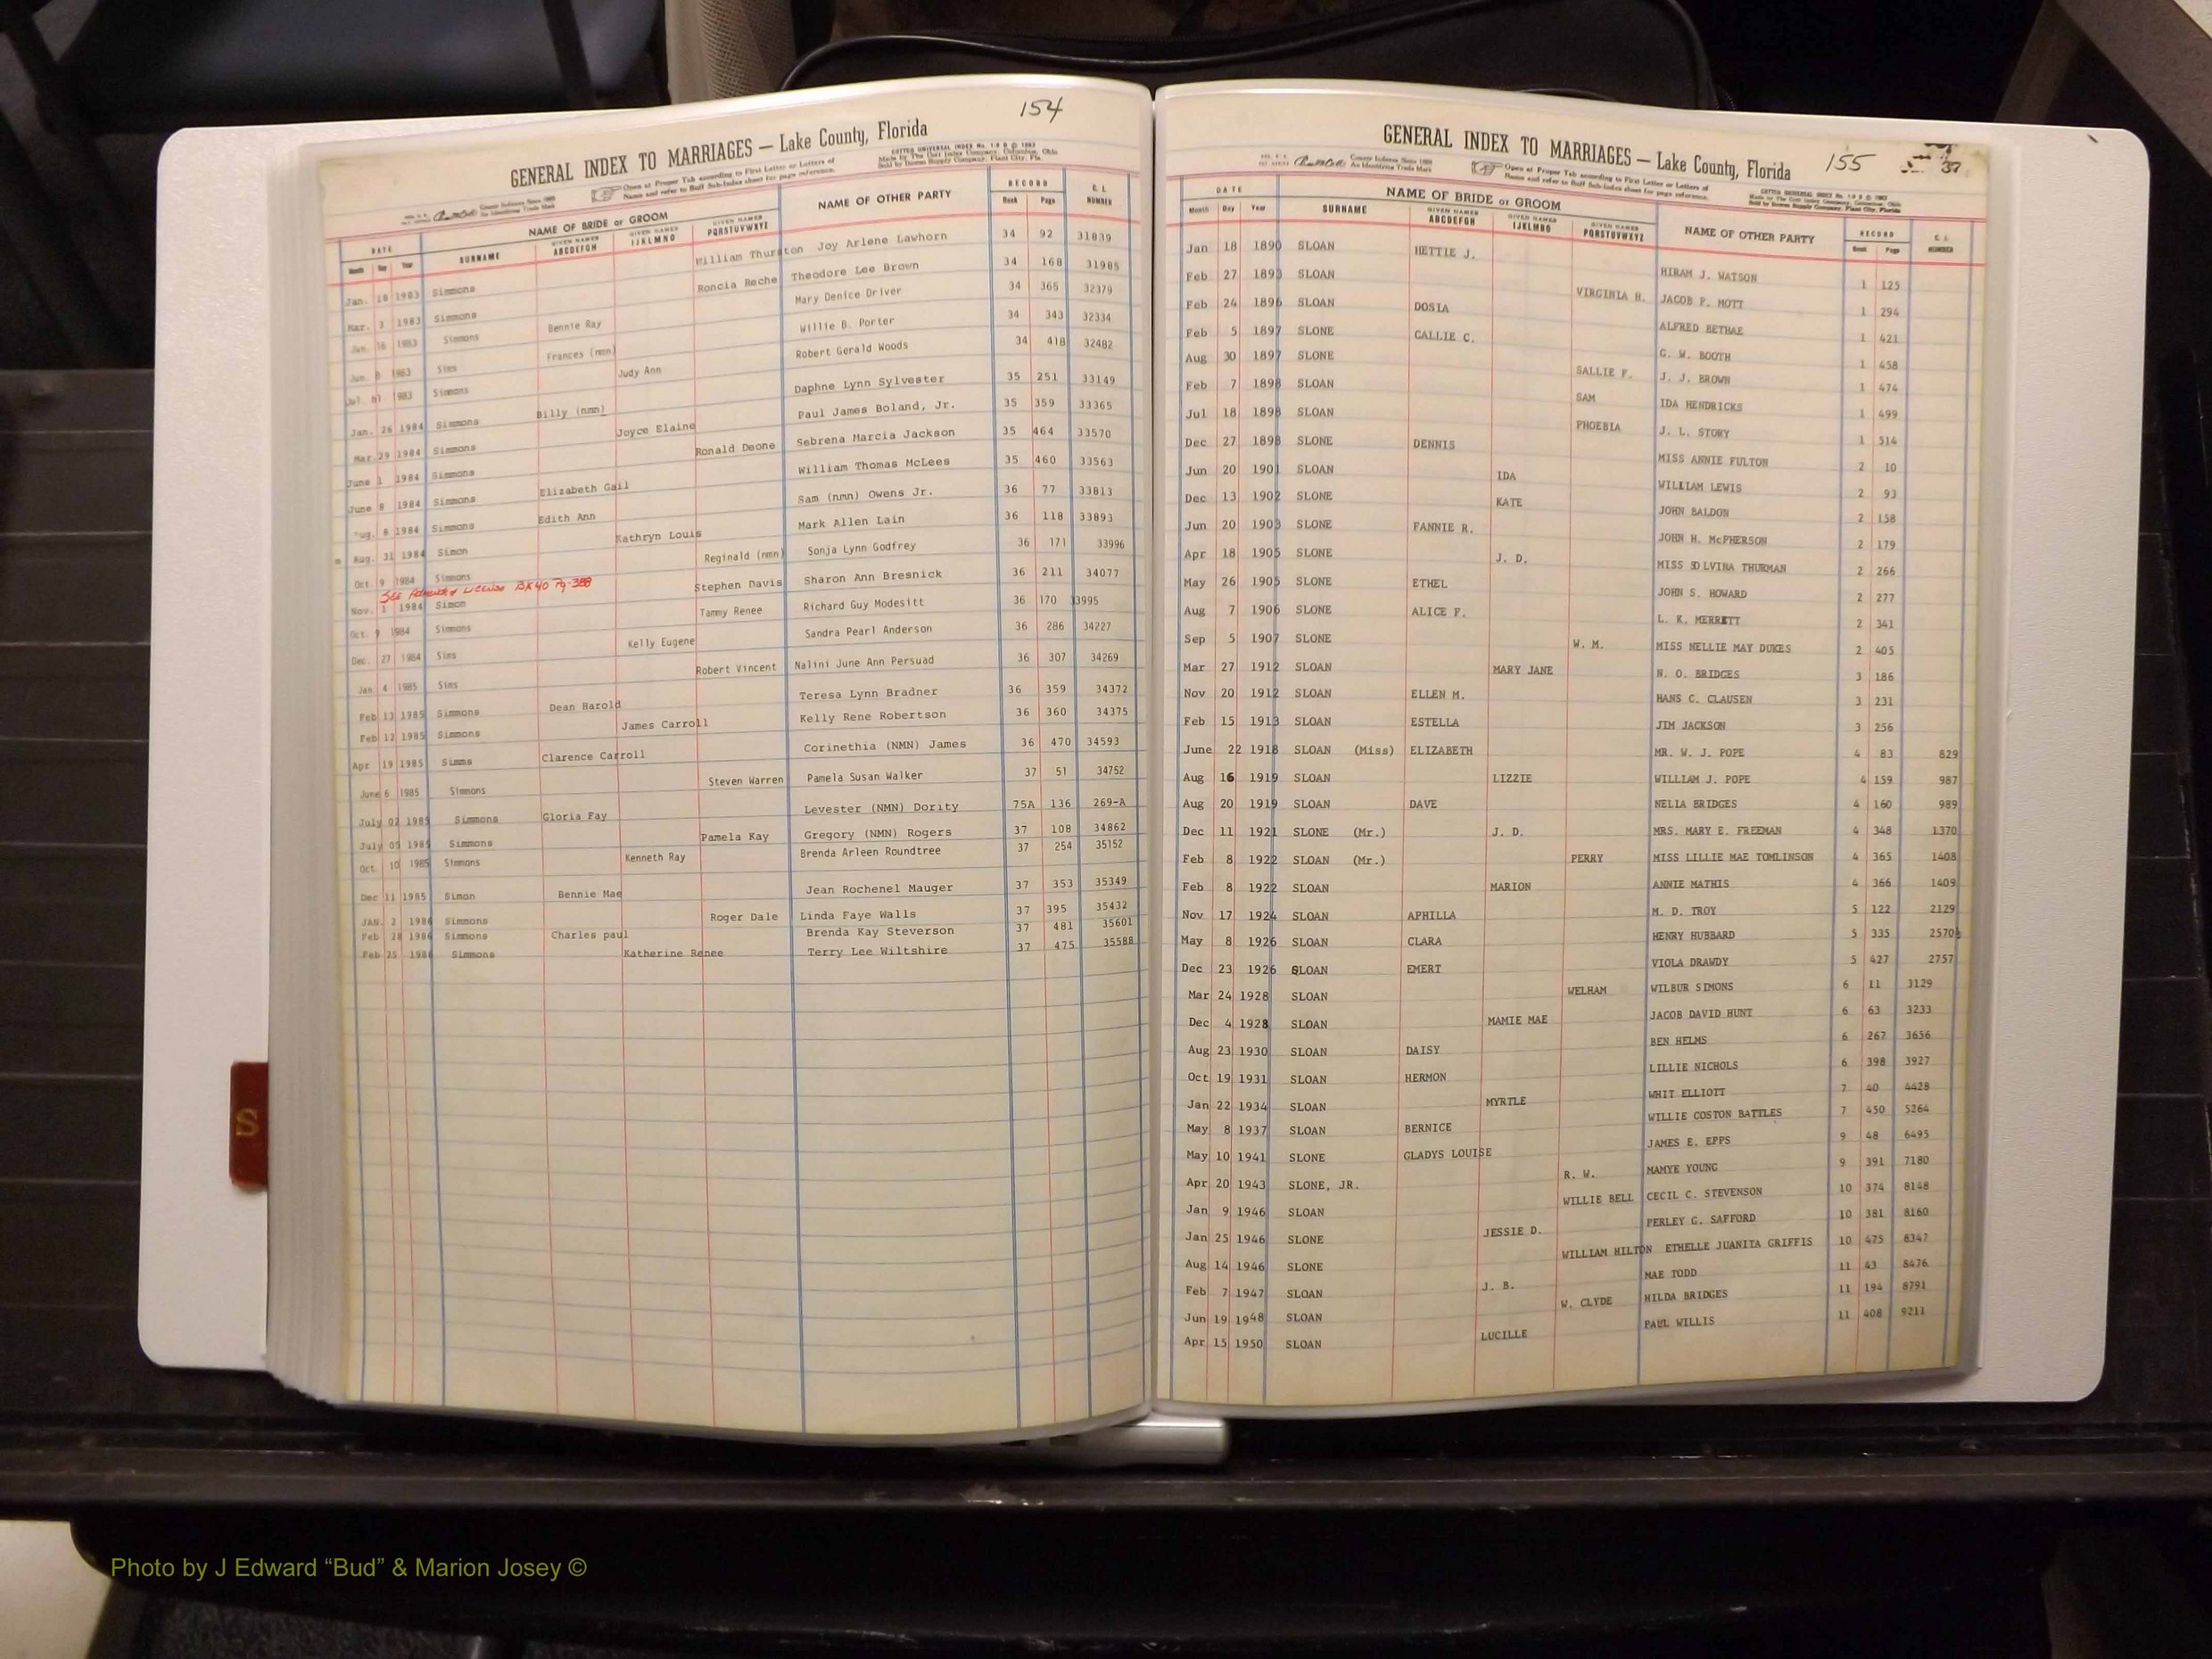 154
GENERAL INDEX TO MARRIAGES — Lake County, Florida
COTT'S UNIVERSAL INDEX No. 1-9 B © 1983
Made by The Cott Index Company, Columbus, Ohio
Sold by Dowes Supply Company, Plant City, Fla.
County Indexes Since 1888
An Identifying Trade Mark
Open at Proper Tab according to First Letter or Letters of
Name and refer to Buff Sub-Index sheet for page reference.
DATE NAME OF BRIDE or GROOM NAME OF OTHER PARTY RECORD C. L.
Month Day Year SURNAME GIVEN NAMES ABCDEFGH GIVEN NAMES IJKLMNO GIVEN NAMES PQRSTUVWXYZ Book Page NUMBER
Jan. 18 1983 Simmons William Thurston Joy Arlene Lawhorn 34 92 31839
Mar. 3 1983 Simmons Roncia Reche Theodore Lee Brown 34 168 31985
Jun. 16 1983 Simmons Bennie Ray Mary Denice Driver 34 365 32379
Jun. 8 1983 Sims Frances (nmn) Willie B. Porter 34 343 32334
Jul. 1983 Simmons Judy Ann Robert Gerald Woods 34 418 32482
Jan. 26 1984 Simmons Billy (nmn) Daphne Lynn Sylvester 35 251 33149
Mar. 29 1984 Simmons Joyce Elaine Paul James Boland, Jr. 35 359 33365
June 1 1984 Simmons Ronald Deone Sebrena Marcia Jackson 35 464 33570
June 8 1984 Simmons Elizabeth Gail William Thomas McLees 35 460 33563
Aug. 8 1984 Simmons Edith Ann Sam (nmn) Owens Jr. 36 77 33813
Aug. 31 1984 Simon Kathryn Louis Mark Allen Lain 36 118 33893
Oct 9 1984 Simmons Reginald (nmn) Sonja Lynn Godfrey 36 171 33996
See License BK 40 Pg-388
Nov. 1 1984 Simon Stephen Davis Sharon Ann Bresnick 36 211 34077
Oct. 9 1984 Simmons Tammy Renee Richard Guy Modesitt 36 170 33995
Dec. 27 1984 Sims Kelly Eugene Sandra Pearl Anderson 36 286 34227
Jan 4 1985 Sims Robert Vincent Nalini June Ann Persuad 36 307 34269
Feb 13 1985 Simmons Dean Harold Teresa Lynn Bradner 36 359 34372
Feb 12 1985 Simmons James Carroll Kelly Rene Robertson 36 360 34375
Apr 19 1985 Simms Clarence Carroll Corinethia (NMN) James 36 470 34593
June 6 1985 Simmons Steven Warren Pamela Susan Walker 37 51 34752
July 02 1985 Simmons Gloria Fay Levester (NMN) Dority 75A 136 269-A
July 05 1985 Simmons Pamela Kay Gregory (NMN) Rogers 37 108 34862
Oct. 10 1985 Simmons Kenneth Ray Brenda Arleen Roundtree 37 254 35152
Dec 11 1985 Simon Bennie Mae Jean Rochenel Mauger 37 353 35349
JAN. 2 1986 Simmons Roger Dale Linda Faye Walls 37 395 35432
Feb 28 1986 Simmons Charles paul Brenda Kay Steverson 37 481 35601
Feb 25 1986 Simmons Katherine Renee Terry Lee Wiltshire 37 475 35588
S
GENERAL INDEX TO MARRIAGES — Lake County, Florida
155
37
County Indexes Since 1888
An Identifying Trade Mark
Open at Proper Tab according to First Letter or Letters of
Name and refer to Buff Sub-Index sheet for page reference.
DATE NAME OF BRIDE or GROOM NAME OF OTHER PARTY RECORD C. L.
Month Day Year SURNAME GIVEN NAMES ABCDEFGH GIVEN NAMES IJKLMNO GIVEN NAMES PQRSTUVWXYZ Book Page NUMBER
Jan 18 1890 SLOAN HETTIE J. HIRAM J. WATSON 1 125
Feb 27 1893 SLOAN VIRGINIA H. JACOB P. MOTT 1 294
Feb 24 1896 SLOAN DOSIA ALFRED BETHAE 1 421
Feb 5 1897 SLONE CALLIE C. G. W. BOOTH 1 458
Aug 30 1897 SLONE SALLIE F. J. J. BROWN 1 474
Feb 7 1898 SLOAN SAM IDA HENDRICKS 1 499
Jul 18 1898 SLOAN PHOEBIA J. L. STORY 1 514
Dec 27 1898 SLONE DENNIS MISS ANNIE FULTON 2 10
Jun 20 1901 SLOAN IDA WILLIAM LEWIS 2 93
Dec 13 1902 SLONE KATE JOHN BALDON 2 158
Jun 20 1903 SLONE FANNIE R. JOHN H. McPHERSON 2 179
Apr 18 1905 SLONE J. D. MISS SOLVINA THURMAN 2 266
May 26 1905 SLONE ETHEL JOHN S. HOWARD 2 277
Aug 7 1906 SLONE ALICE F. L. K. MERRETT 2 341
Sep 5 1907 SLONE W. M. MISS NELLIE MAY DUKES 2 405
Mar 27 1912 SLOAN MARY JANE N. O. BRIDGES 3 186
Nov 20 1912 SLOAN ELLEN M. HANS C. CLAUSEN 3 231
Feb 15 1913 SLOAN ESTELLA JIM JACKSON 3 256
June 22 1918 SLOAN (Miss) ELIZABETH MR. W. J. POPE 4 83 829
Aug 16 1919 SLOAN LIZZIE WILLIAM J. POPE 4 159 987
Aug 20 1919 SLOAN DAVE NELIA BRIDGES 4 160 989
Dec 11 1921 SLONE (Mr.) J. D. MRS. MARY E. FREEMAN 4 348 1370
Feb 8 1922 SLOAN (Mr.) PERRY MISS LILLIE MAE TOMLINSON 4 365 1408
Feb 8 1922 SLOAN MARION ANNIE MATHIS 4 366 1409
Nov 17 1924 SLOAN APHILLA M. D. TROY 5 122 2129
May 8 1926 SLOAN CLARA HENRY HUBBARD 5 335 2570
Dec 23 1926 SLOAN EMERT VIOLA DRAWDY 5 427 2757
Mar 24 1928 SLOAN WELHAM WILBUR SIMONS 6 11 3129
Dec 4 1928 SLOAN MAMIE MAE JACOB DAVID HUNT 6 63 3233
Aug 23 1930 SLOAN DAISY BEN HELMS 6 267 3656
Oct 19 1931 SLOAN HERMON LILLIE NICHOLS 6 398 3927
Jan 22 1934 SLOAN MYRTLE WHIT ELLIOTT 7 40 4428
May 8 1937 SLOAN BERNICE WILLIE COSTON BATTLES 7 450 5264
May 10 1941 SLONE GLADYS LOUISE JAMES E. EPPS 9 48 6495
Apr 20 1943 SLONE, JR. R. W. MAMYE YOUNG 9 391 7180
Jan 9 1946 SLOAN WILLIE BELL CECIL C. STEVENSON 10 374 8148
Jan 25 1946 SLONE JESSIE D. PERLEY G. SAFFORD 10 381 8160
Aug 14 1946 SLONE WILLIAM HILTON ETHELLE JUANITA GRIFFIS 10 475 8347
Feb 7 1947 SLOAN J. B. MAE TODD 11 43 8476
Jun 19 1948 SLOAN W. CLYDE HILDA BRIDGES 11 194 8791
Apr 15 1950 SLOAN LUCILLE PAUL WILLIS 11 408 9211
Photo by J Edward “Bud” & Marion Josey ©